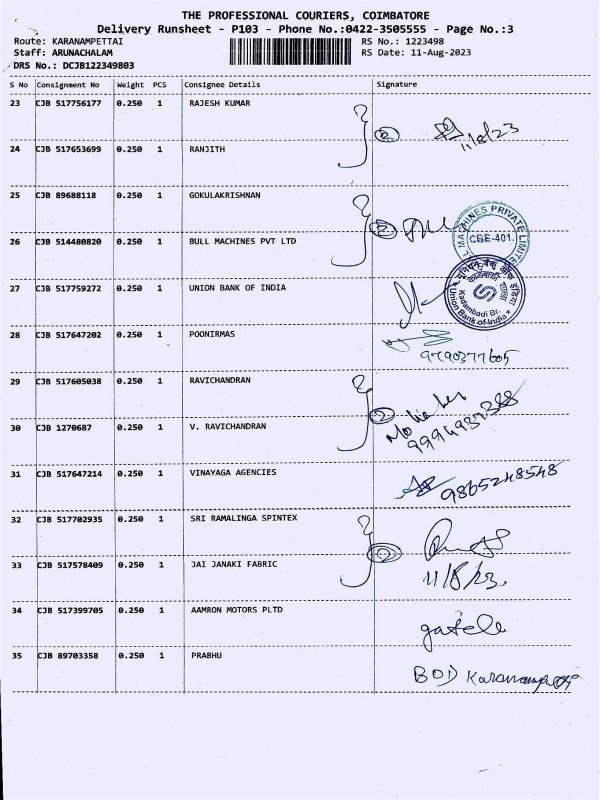 THE PROFESSIONAL COURIERS, COIMBATORE
Delivery Runsheet - P103 - Phone No.:0422-3505555 - Page No.:3
Route: KARANAMPETTAI RS No.: 1223498
Staff: ARUNACHALAM RS Date: 11-Aug-2023
DRS No.: DCJB122349803
S No Consignment No Weight PCS Consignee Details Signature
23 CJB 517756177 0.250 1 RAJESH KUMAR
2 11/8/23
24 CJB 517653699 0.250 1 RANJITH
25 CJB 89688118 0.250 1 GOKULAKRISHNAN
2
MACHINES PRIVATE LIMITE
CBE-401.
26 CJB 514480820 0.250 1 BULL MACHINES PVT LTD
27 CJB 517759272 0.250 1 UNION BANK OF INDIA
यूनियन बैंक ऑफ इंडिया
Kadambadi Br.
Union Bank of India
28 CJB 517647202 0.250 1 POONIRMAS
9790377605
29 CJB 517605038 0.250 1 RAVICHANDRAN
2
9994937388
30 CJB 1270687 0.250 1 V. RAVICHANDRAN
31 CJB 517647214 0.250 1 VINAYAGA AGENCIES
9865248548
32 CJB 517702935 0.250 1 SRI RAMALINGA SPINTEX
33 CJB 517578409 0.250 1 JAI JANAKI FABRIC
11/8/23.
34 CJB 517399705 0.250 1 AAMRON MOTORS PLTD
35 CJB 89703358 0.250 1 PRABHU
BOD